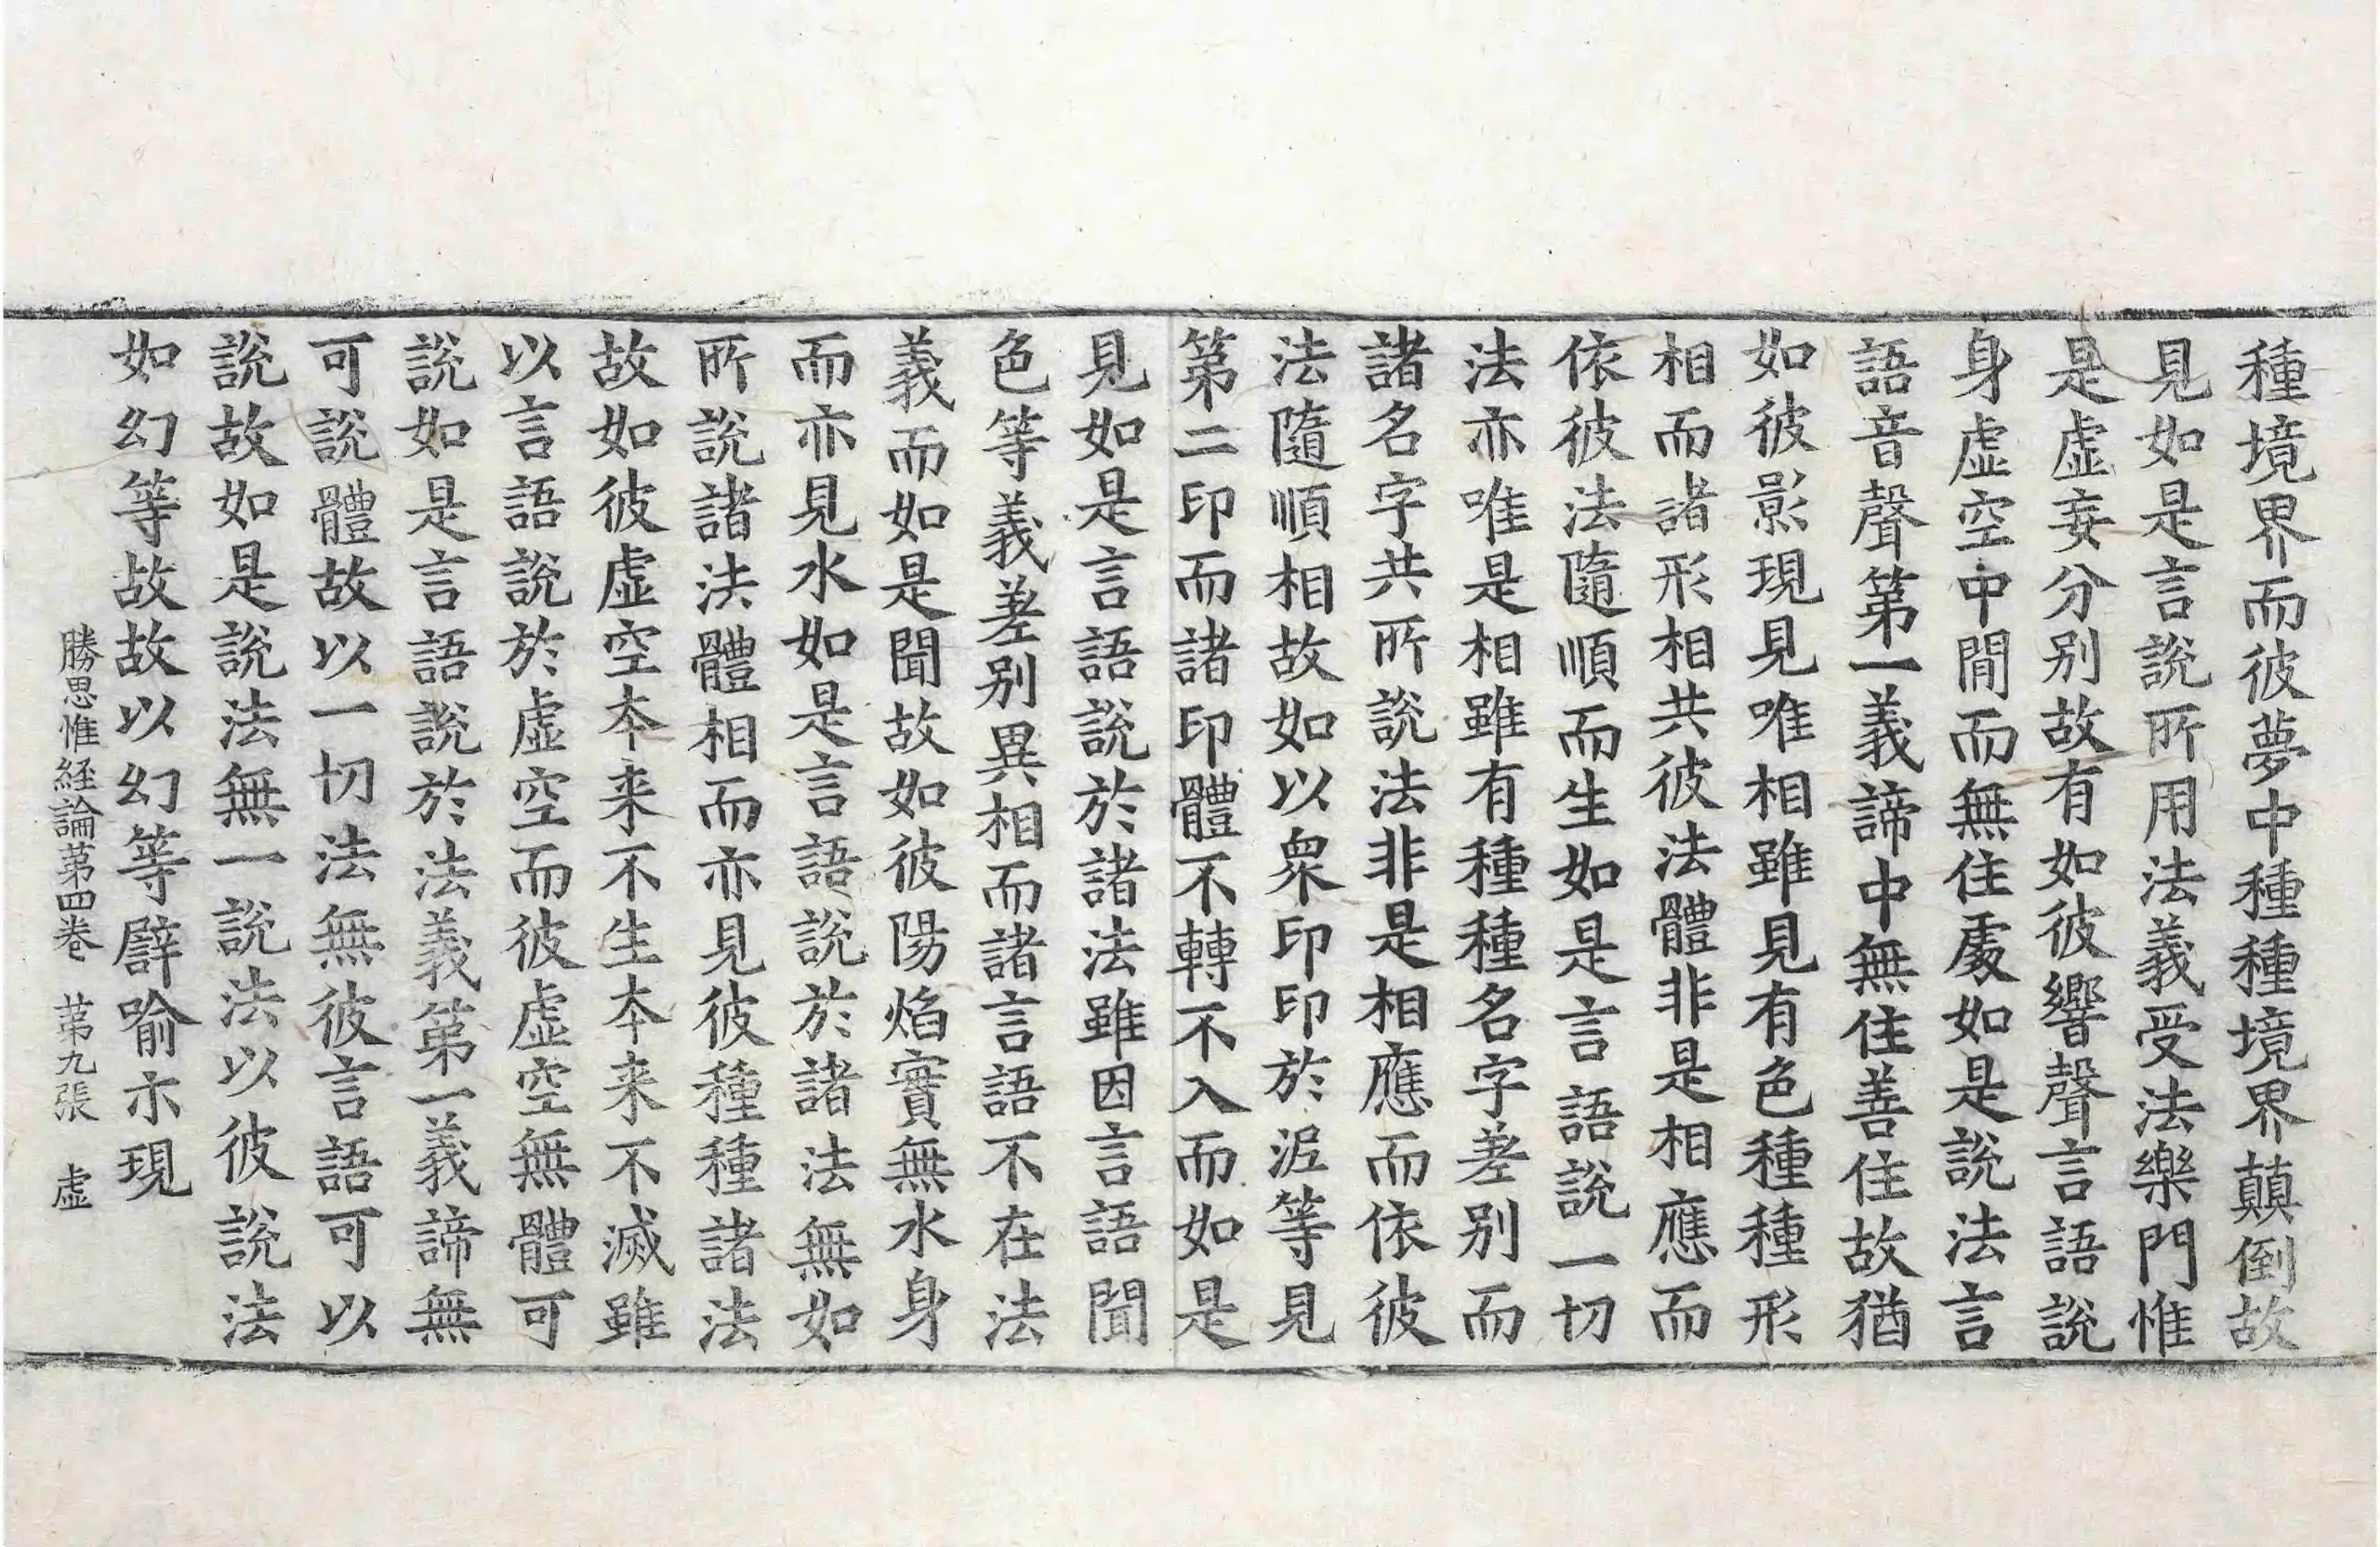 種境界而彼夢中種種境界顛倒故
見如是言說所用法義受法樂門惟
是虛妄分別故有如彼響聲言語說
身虛空中間而無住處如是說法言
語音聲第一義諦中無住善住故猶
如彼影現見唯相雖見有色種種形
相而諸形相共彼法體非是相應而
依彼法隨順而生如是言語說一切
法亦唯是相雖有種種名字差別而
諸名字共所說法非是相應而依彼
法隨順相故如以衆印印於泥等見
第二印而諸印體不轉不入而如是
見如是言語說於諸法雖因言語聞
色等義差別異相而諸言語不在法
義而如是聞故如彼陽焰實無水身
而亦見水如是言語說於諸法無如
所說諸法體相而亦見彼種種諸法
故如彼虛空本来不生本来不滅雖
以言語說於虛空而彼虛空無體可
說如是言語說於法義第一義諦無
可說體故以一切法無彼言語可以
說故如是說法無一說法以彼說法
如幻等故故以幻等譬喻示現
勝思惟経論第四卷　第九張　虛